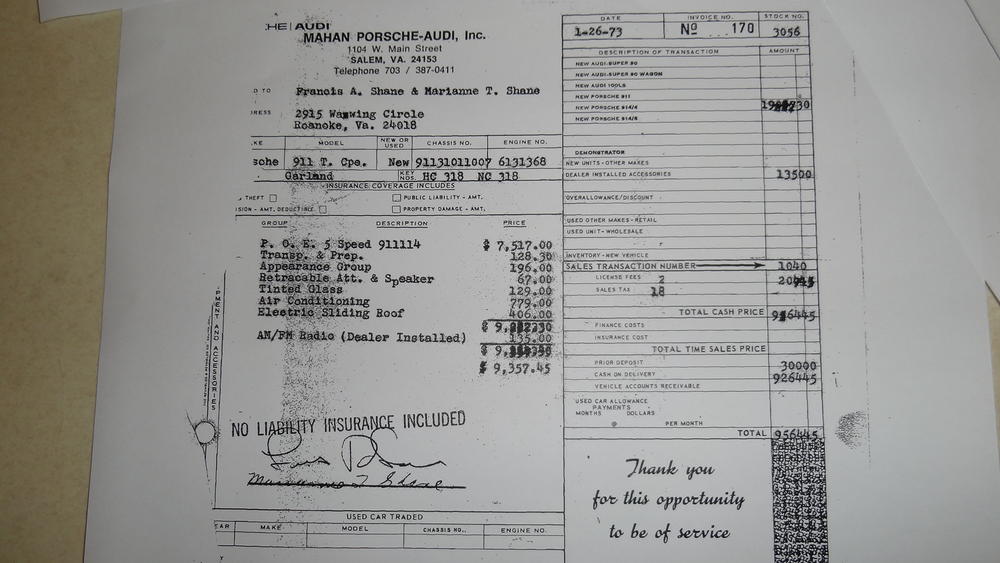 HE | AUDI
MAHAN PORSCHE-AUDI, Inc.
1104 W. Main Street
SALEM, VA. 24153
Telephone 703 / 387-0411
DATE INVOICE NO. STOCK NO.
1-26-73 Nº 170 3056
D TO Francis A. Shane & Marianne T. Shane
RESS 2915 Waxwing Circle
Roanoke, Va. 24018
KE MODEL NEW OR USED CHASSIS NO. ENGINE NO.
sche 911 T. Cpe. New 9113101007 6131368
Garland KEY NOS. HC 318 NC 318
INSURANCE COVERAGE INCLUDES
THEFT PUBLIC LIABILITY - AMT.
ISION - AMT. DEDUCTIBLE PROPERTY DAMAGE - AMT.
GROUP DESCRIPTION PRICE
P. O. E. 5 Speed 911114 $ 7,517.00
Transp. & Prep. 128.30
Appearance Group 196.00
Retracable Att. & Speaker 67.00
Tinted Glass 129.00
Air Conditioning 779.00
Electric Sliding Roof 406.00
AM/FM Radio (Dealer Installed) 135.00
$ 9,357.45
PMENT AND ACCESSORIES
NO LIABILITY INSURANCE INCLUDED
Marianne T Shane
USED CAR TRADED
EAR MAKE MODEL CHASSIS NO. ENGINE NO.
DESCRIPTION OF TRANSACTION AMOUNT
NEW AUDI-SUPER 90
NEW AUDI-SUPER 90 WAGON
NEW AUDI 100LS
NEW PORSCHE 911
NEW PORSCHE 914/4
NEW PORSCHE 914/6
DEMONSTRATOR
NEW UNITS - OTHER MAKES
DEALER INSTALLED ACCESSORIES 13500
OVERALLOWANCE/DISCOUNT
USED OTHER MAKES - RETAIL
USED UNIT - WHOLESALE
INVENTORY - NEW VEHICLE
SALES TRANSACTION NUMBER 1040
LICENSE FEES 2
SALES TAX 18
TOTAL CASH PRICE 956445
FINANCE COSTS
INSURANCE COST
TOTAL TIME SALES PRICE
PRIOR DEPOSIT 30000
CASH ON DELIVERY 926445
VEHICLE ACCOUNTS RECEIVABLE
USED CAR ALLOWANCE
PAYMENTS
MONTHS DOLLARS
@ PER MONTH
TOTAL 956445
Thank you
for this opportunity
to be of service